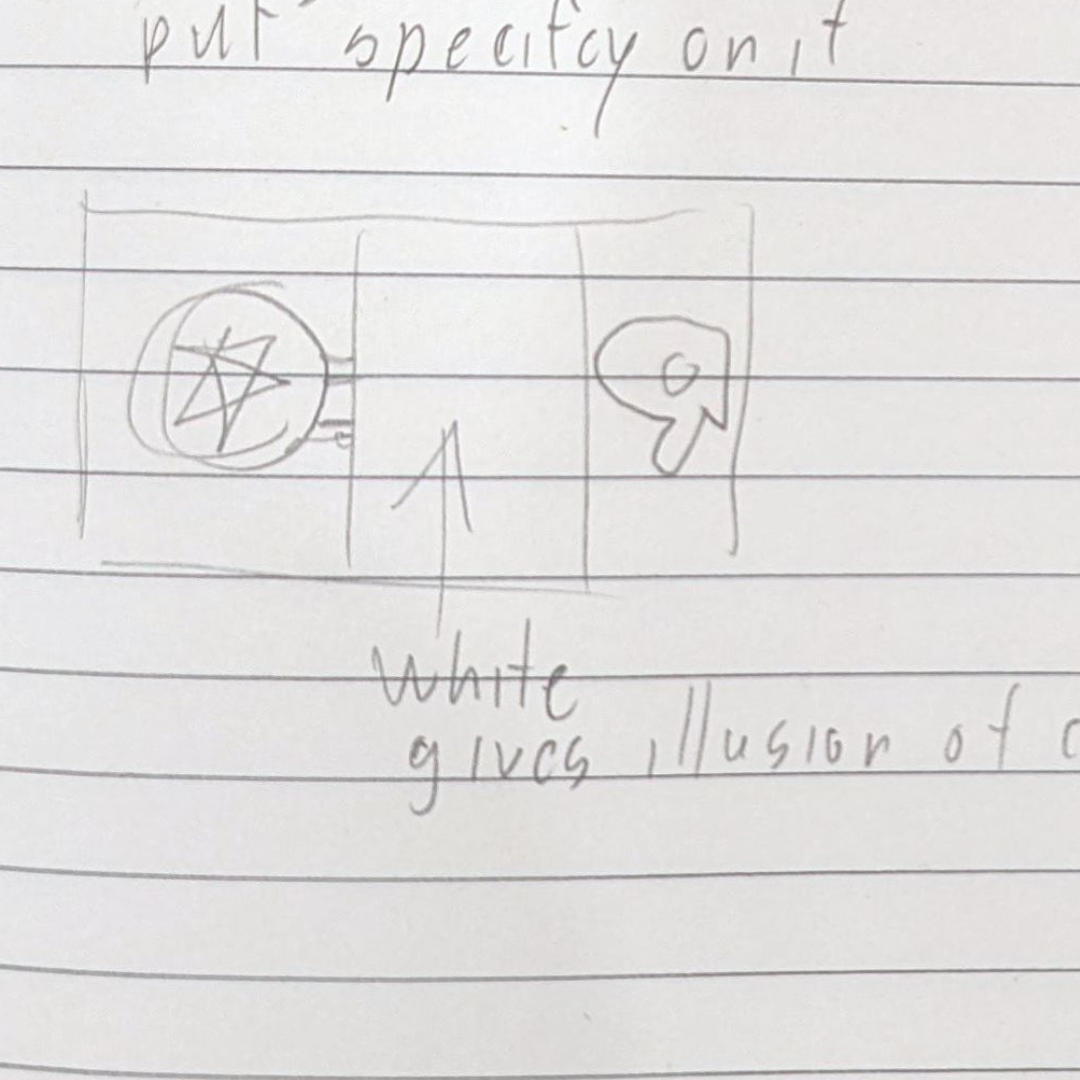 put specifcy on it
white
gives illusion of